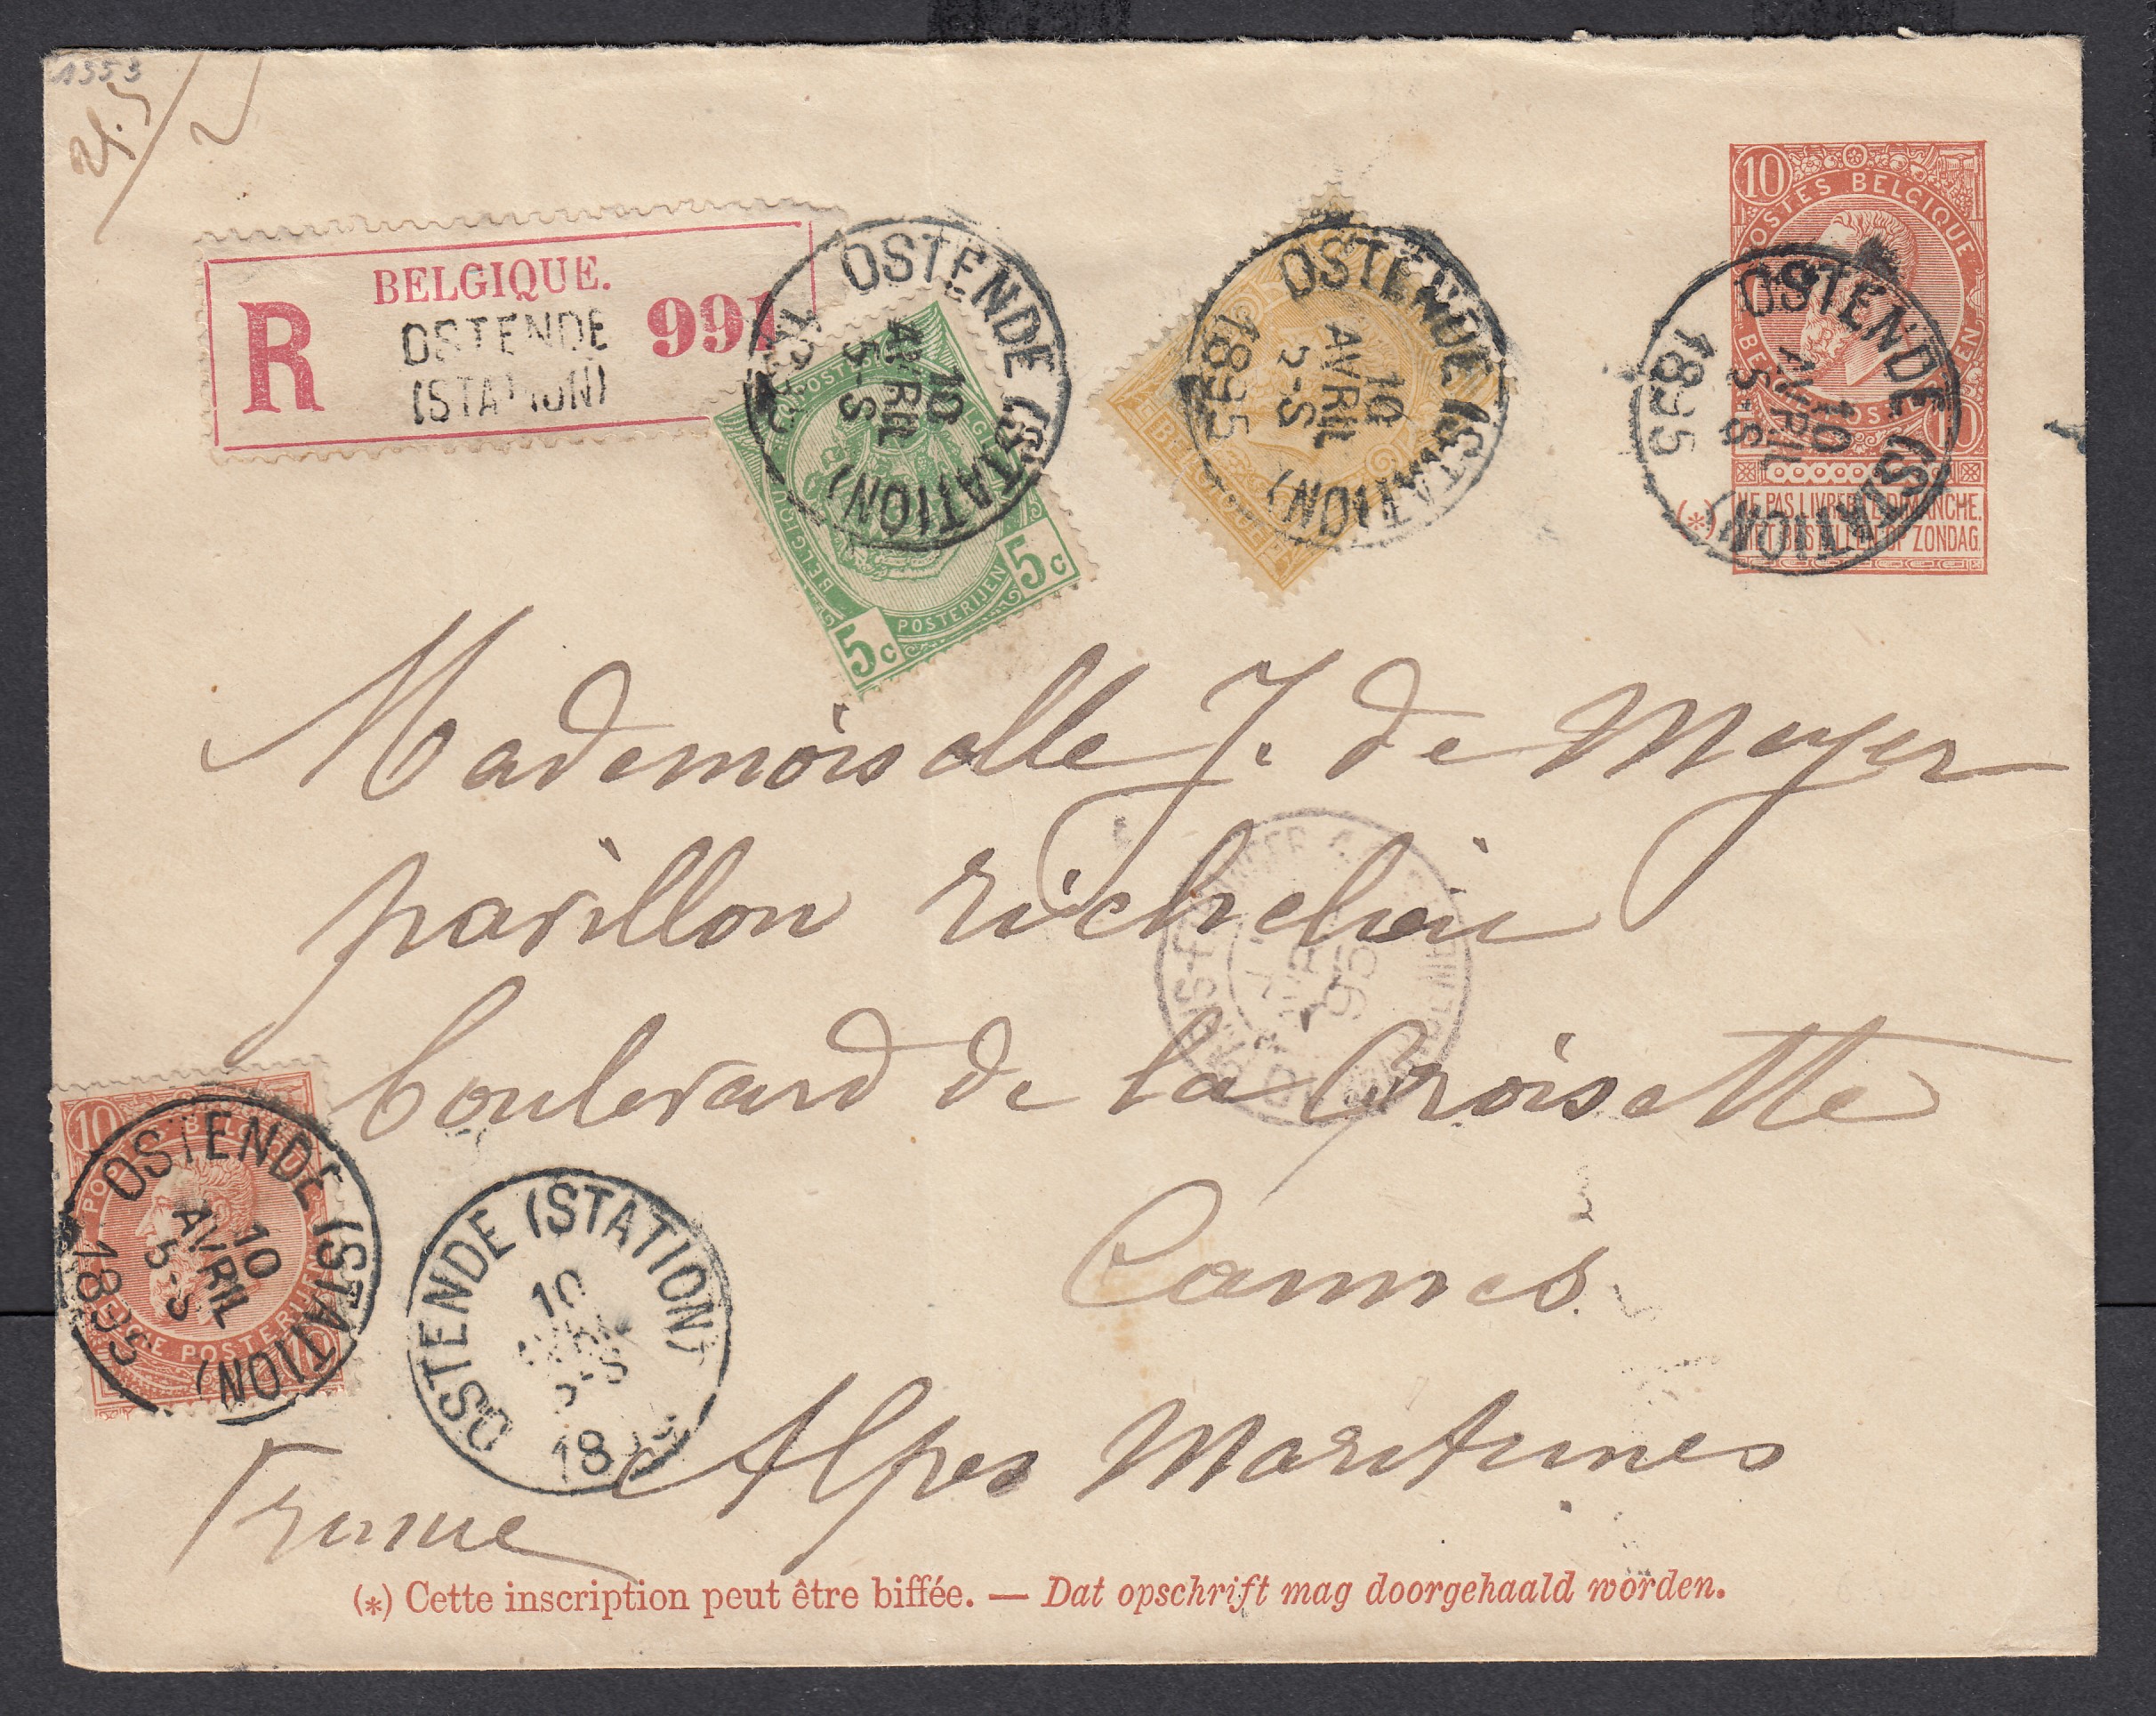 1553
BELGIQUE.
R
OSTENDE
(STATION)
991
OSTENDE (STATION)
10
AVRIL
5-S
BELGIQUE
POSTERIJEN
5c
5c
OSTENDE (STATION)
10
AVRIL
5-S
1895
BELGIQUE
10
POSTES BELGIQUE
10
OSTENDE (STATION)
10
AVRIL
5-S
1895
(*) NE PAS LIVRER LE DIMANCHE.
NIET BESTELLEN OP ZONDAG.
Mademoiselle J. de Meyer
pavillon richelieu
boulevard de la Croisette
Cannes
Alpes Maritimes
France
10
OSTENDE (STATION)
10
AVRIL
5-S
1895
BELGIE POSTERIJEN
OSTENDE (STATION)
10
18
(*) Cette inscription peut être biffée. — Dat opschrift mag doorgehaald worden.